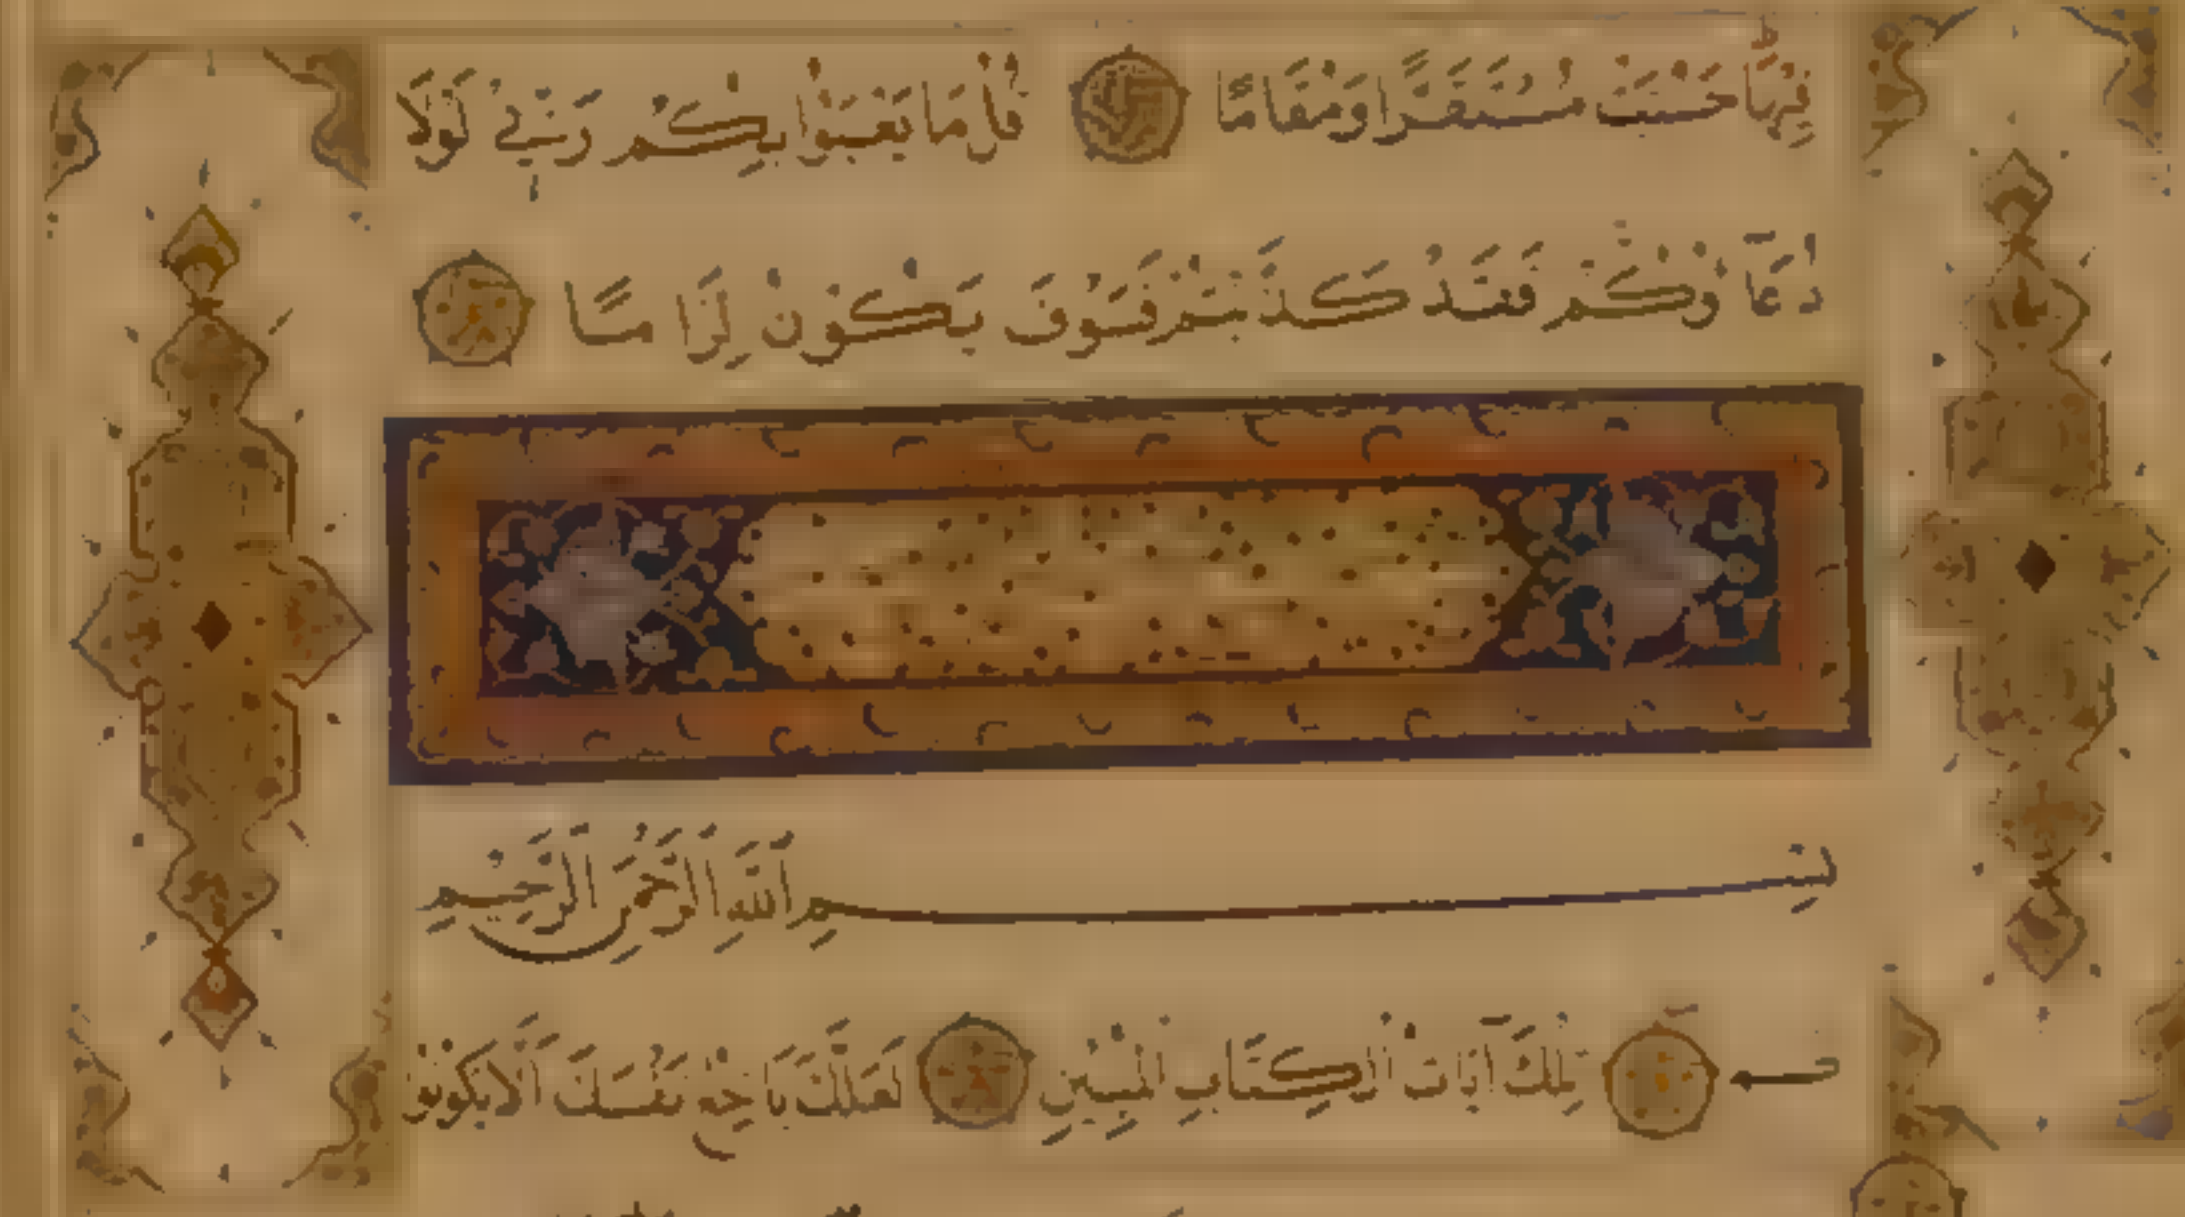 فِيهَا حَسُنَتْ مُسْتَقَرًّا وَمُقَامًا قُلْ مَا يَعْبَؤُا بِكُمْ رَبِّي لَوْلَا
دُعَآؤُكُمْ فَقَدْ كَذَّبْتُمْ فَسَوْفَ يَكُونُ لِزَامًا
بِسْمِ اللَّهِ الرَّحْمَٰنِ الرَّحِيمِ
تِلْكَ آيَاتُ الْكِتَابِ الْمُبِينِ لَعَلَّكَ بَاخِعٌ نَفْسَكَ أَلَّا يَكُونُوا